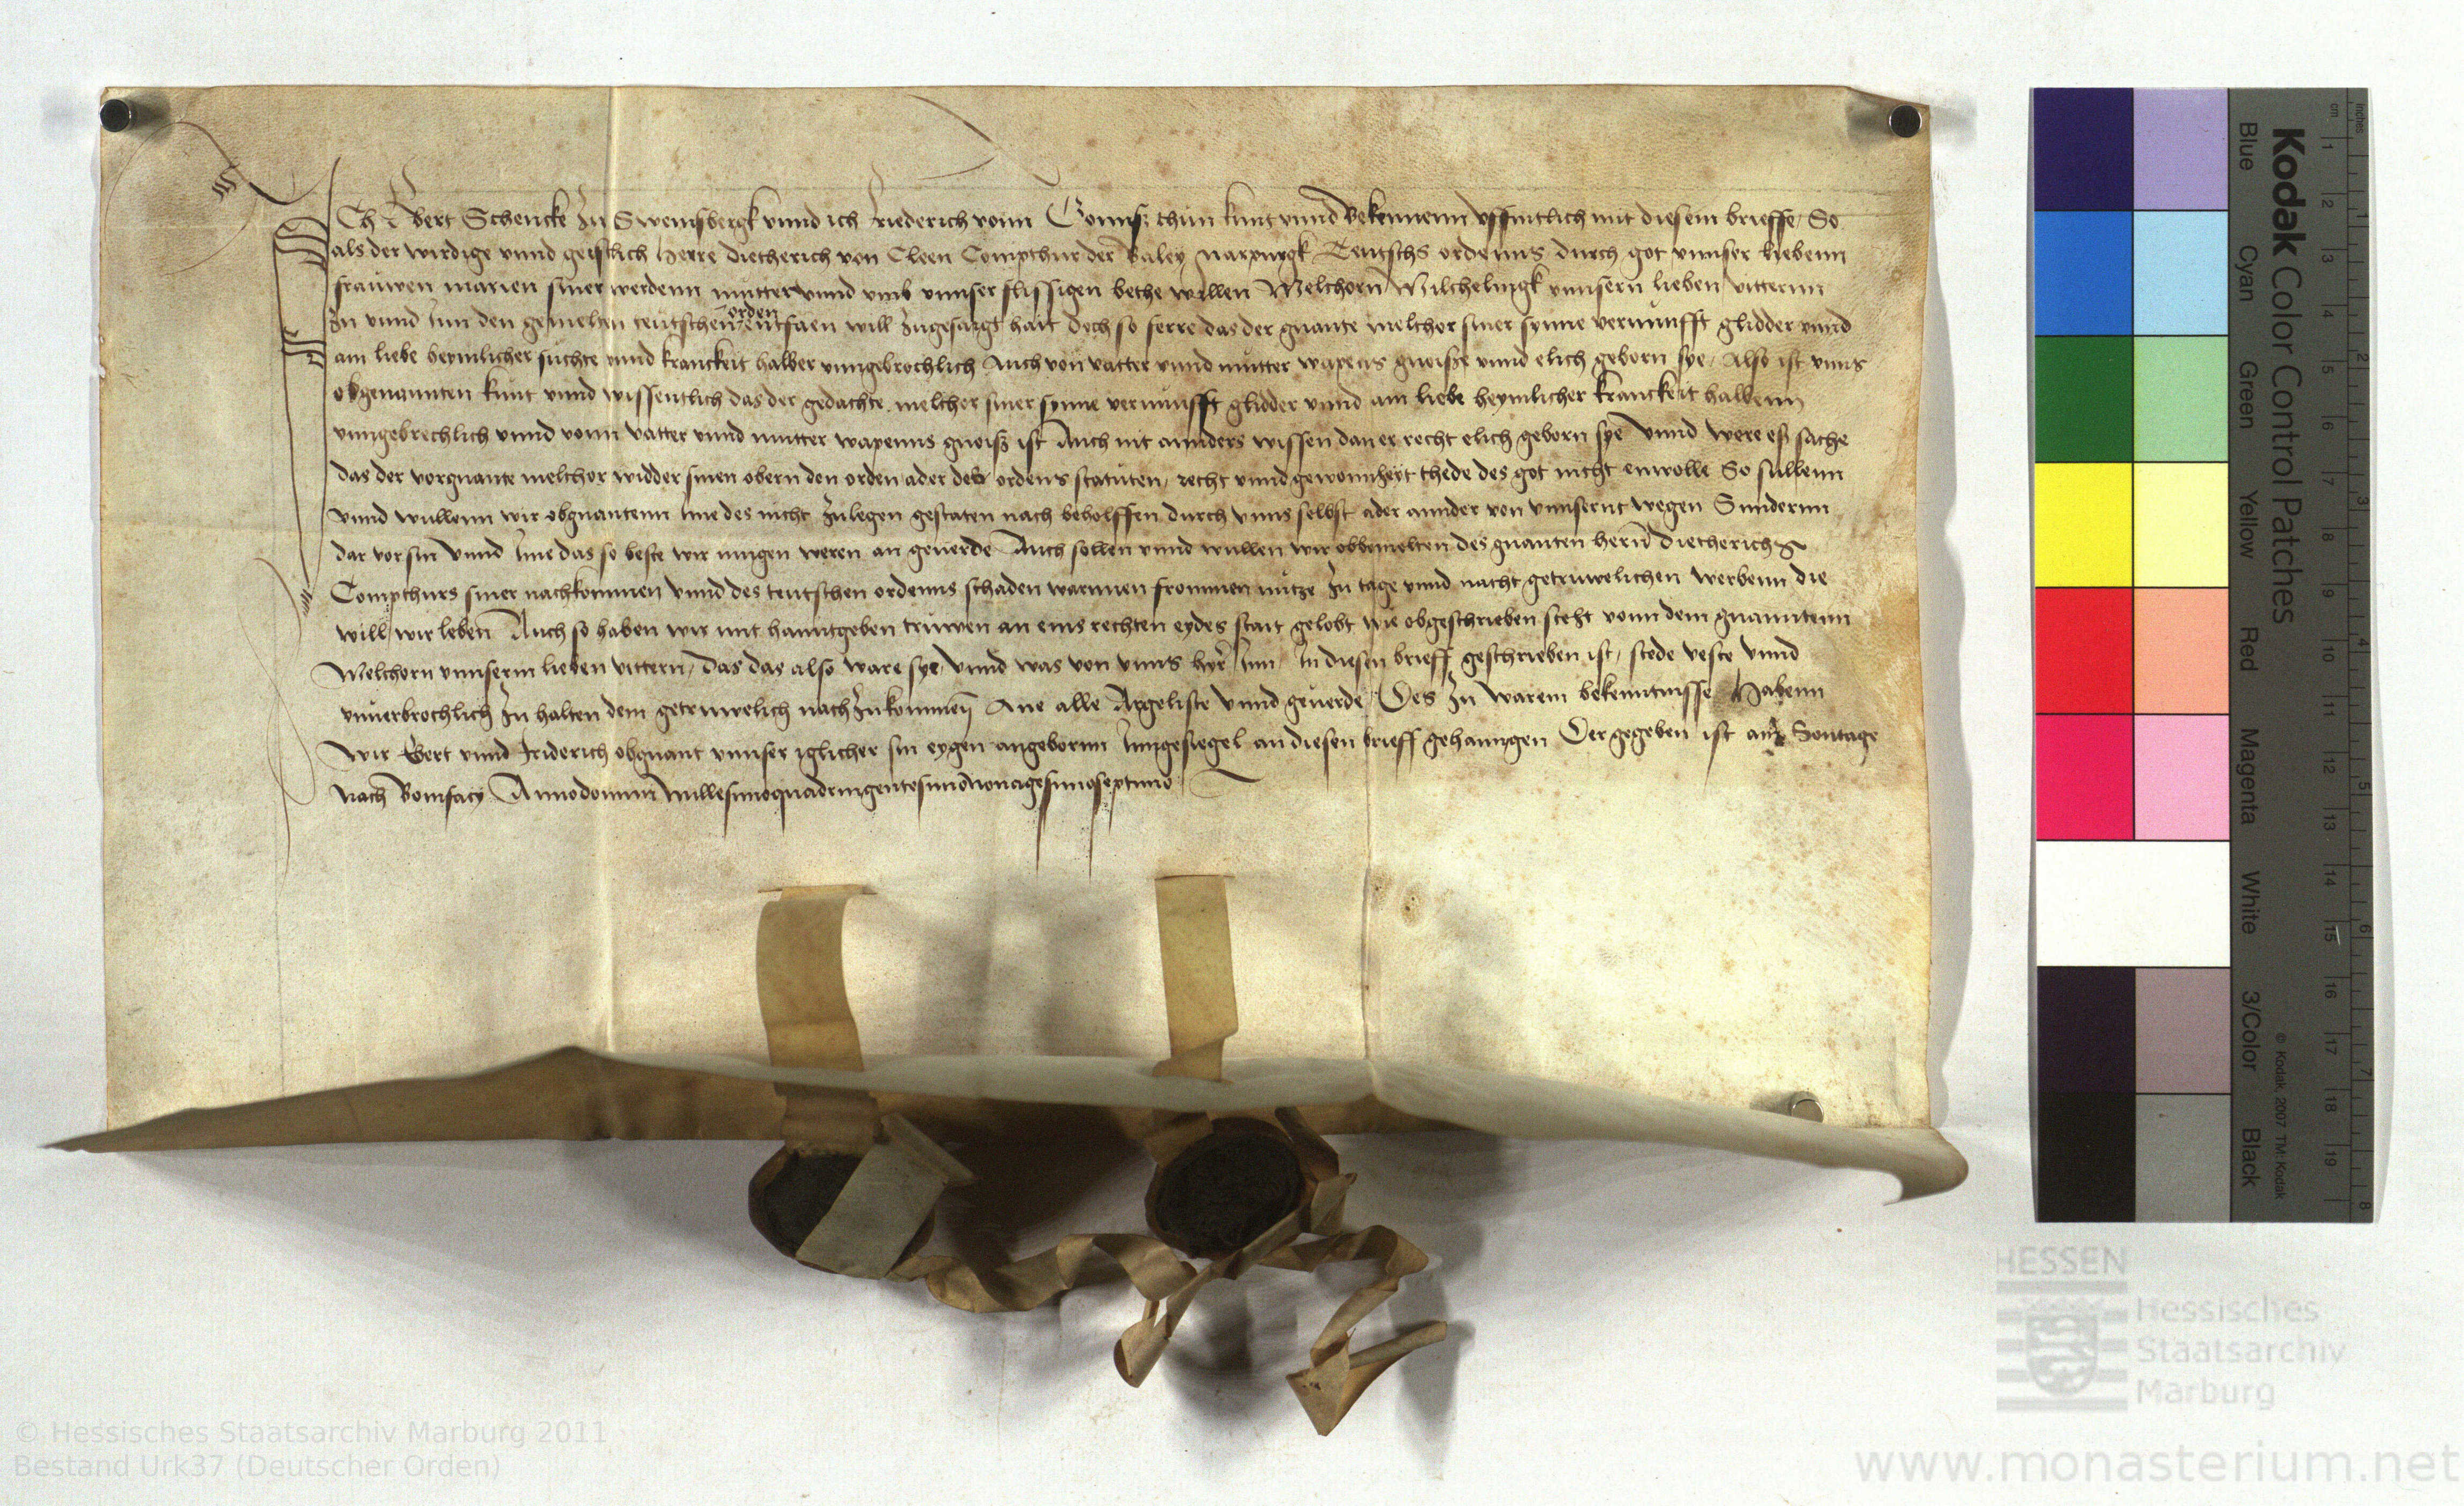 ICh Ebert Schencke zu Sweinsbergk vnnd ich Friederich vonn thun kunt vnnd bekennenn vffintlich mit diesem brieffe So
als der wirdige vnnd geistlich herre Dietherich von Cleen Compthur der Baley Marpurgk Teutschs ordenns durch got vnnser liebenn
frauwen marien siner werdenn mutter vnnd vmb vnnser flissigen bethe willen Melchorn vnnsern lieben vitternn
zu vnnd Inn den gemelten teutschen orden entfaen will zugesaigt hait doch so ferre das der gnante melchor siner synne vernunfft glidder vnnd
am liebe heymlicher suchte vnnd kranckeit halber vnngebrochlich Auch von vatter vnnd mutter wapens gnoisze vnnd elich geborn sye Also ist vnns
obgenannten kunt vnnd wissentlich das der gedachte melchor siner synne vernunfft glidder vnnd am liebe heymlicher kranckeit halbenn
vnngebrechlich vnnd vonn vatter vnnd mutter wapenns gnoisz ist Auch nit annders wissen dan er recht elich geborn sye Vnnd were esz sache
das der vorgnante melchor widder sinen obern den orden ader des ordens statuten recht vnnd gewonnheyt thede des got nicht enwolle So sullenn
vnnd wullenn wir obgnantenn Ime des nicht zulegen gestaten nach beholffen durch vnns selbst ader annder von vnnsernt wegen Sundernn
dar vor sin vnnd Ime das so beste wir mugen weren an geuerde Auch sollen vnnd wullen wir obbemelten des gnanten hern Dietherichs
Compthurs siner nachkommen vnnd des teutschen ordenns schaden warnnen frommen nutze zu tage vnnd nacht getruwelichen werbenn die
will wir leben Auch so haben wir mit hanntgeben truwen an eins rechten eydes stait gelobt wie obgeschrieben steht vonn dem gnanntenn
Melchorn vnnserm lieben vittern, das das also ware sye vnnd was von vnns hyr Inn In diesen brieff geschrieben ist, stede veste vnnd
vnuerbrochlich zu halten dem getruwelich nach zukommen Ane alle Argeliste vnnd geuerde Des zu warem bekenntnisse Habenn
wir Ebert vnnd Friderich obgnant vnnser iglicher sin eygen angeborn Inngesiegel an diesen brieff gehanngen Der gegeben ist am Sontage
nach Bonifacy Anno domini Millesimoquadringentesimononagesimoseptimo
Kodak Color Control Patches
Blue Cyan Green Yellow Red Magenta White 3/Color Black
© Kodak, 2007 TM: Kodak
cm 1 2 3 4 5 6 7 8 9 10 11 12 13 14 15 16 17 18 19
Inches 1 2 3 4 5 6 7 8
HESSEN
Hessisches
Staatsarchiv
Marburg
© Hessisches Staatsarchiv Marburg 2011
Bestand Urk37 (Deutscher Orden)
www.monasterium.net